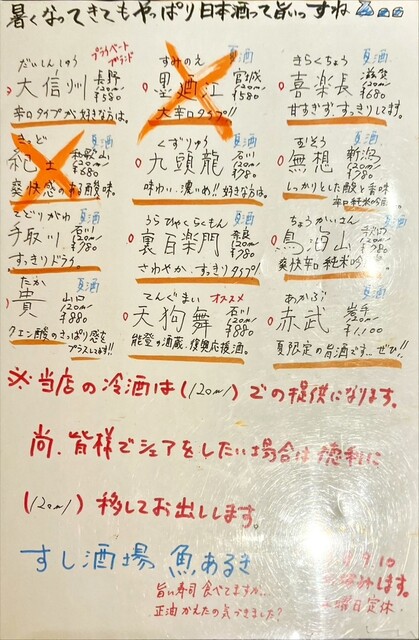 暑くなってきてもやっぱり日本酒って旨いっすね
だいしんしゅう プライベートブランド
大信州 長野 120ml ¥580
辛口タイプが好きな方は。
すみのえ 夏酒
墨廼江 宮城 120ml
大辛口タイプ!!
きらくちょう 夏酒
喜楽長 滋賀 120ml ¥680
甘すぎず、すっきりします。
きっど 夏酒
紀土 和歌山 120ml
爽快感のある酸味。
くずりゅう 夏酒
九頭龍 石川 120ml ¥780
味わい、濃いめ!!好きな方は。
むそう 夏酒
無想 新潟 120ml ¥780
しっかりとした酸と旨味
辛口純米吟醸
てどりがわ 夏酒
手取川 石川 120ml ¥780
すっきりドライ。
うらひゃくらくもん 夏酒
裏百楽門 奈良 120ml ¥780
さわやか、すっきりタイプ!
ちょうかいさん 夏酒
鳥海山 秋田 120ml ¥780
爽快辛口純米吟
たか 夏酒
貴 山口 120ml ¥880
クエン酸のさっぱり感を
プラスしてます!!
てんぐまい オススメ
天狗舞 石川 120ml ¥880
能登の酒蔵、復興応援酒。
あかぶ 夏酒
赤武 岩手 120ml ¥1,100
夏限定の旨酒です…ぜひ!!
※当店の冷酒は(120ml)での提供になります。
尚、皆様でシェアをしたい場合は徳利に
(120ml)移してお出しします。
すし酒場 魚あるき
旨い寿司食べてますか…
正油かえたの気づきました?
9.10
します。
曜日定休